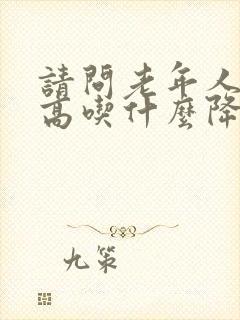 請問老年人
高喫什麼降
九策